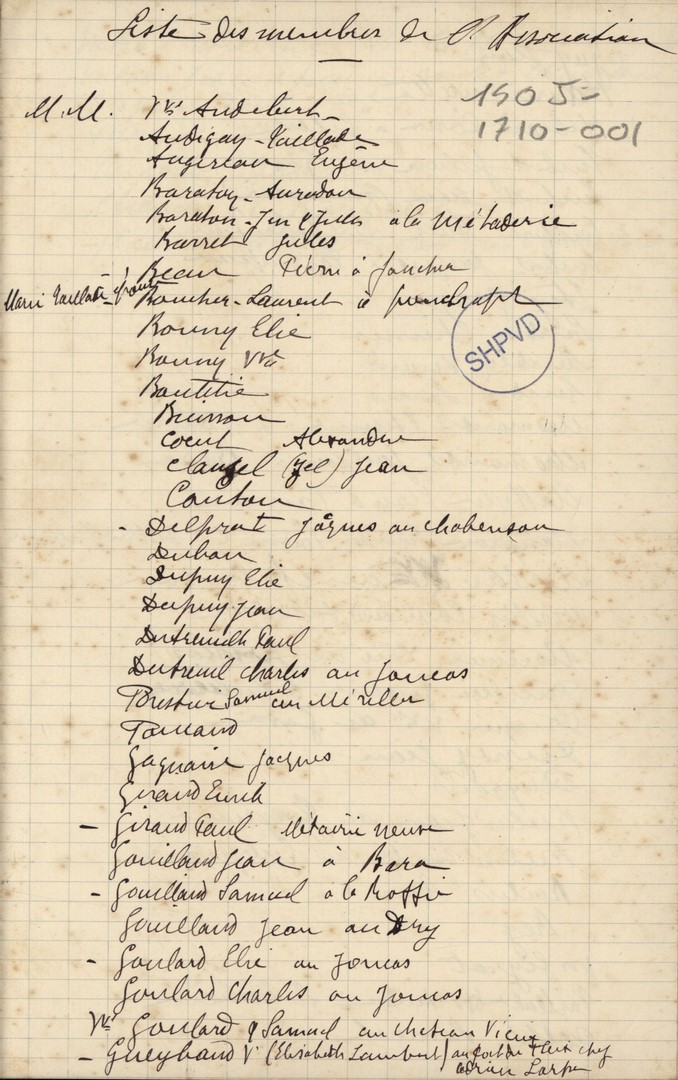 Liste des membres de l'Association
1905-
1710-001
M.M. Vve Audebert
Audigay-Taillade
Augerean Eugène
Baraton-Auredon
Baraton-Jn & Jules à la Métaderie
Barret Jules
- Beau Pierre à
Marie Taillade Boucher-Laurent à
SHPVD
Bonny Elie
Bonny Vve
Boutitie
Buisson
Coeut Alexandre
Clauzel (Jel) Jean
Couton
- Delprat Jâques au Chabenson
Duban
Dupuy Elie
Dupuy Jean
Dutreuilh Paul
Dutreuil Charles au Joncas
Samuel au
Gaquaire Jacques
Giraud
- Giraud Paul Métairie neuve
Gouilland Jean à Bara
- Gouilland Samuel à la Roffie
Gouilland Jean au Dry
- Goulard Elie au Joncas
Goulard Charles au Joncas
Vve Goulard & Samuel au Chateau Vieux
- Gueylaud V. (Elisabeth Lambert) au chez